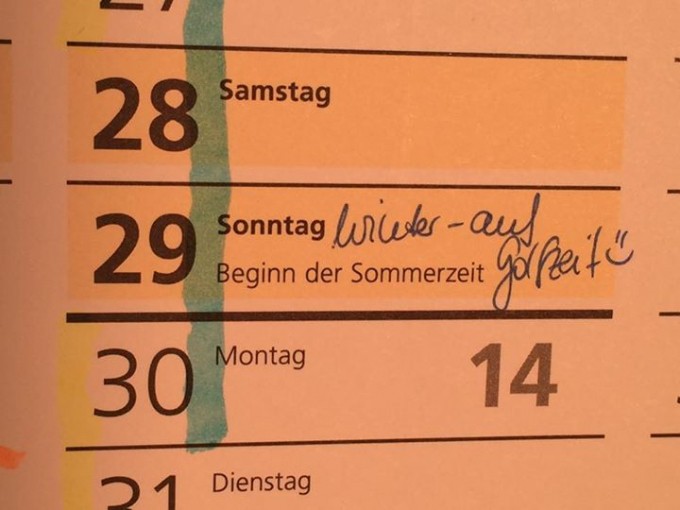 27
28 Samstag
29 Sonntag Winter-auf
Beginn der Sommerzeit
30 Montag 14
31 Dienstag